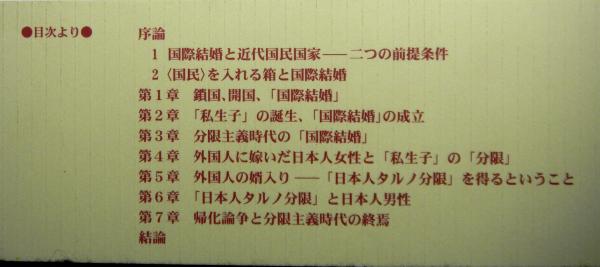 ●目次より● 序論
1 国際結婚と近代国民国家――二つの前提条件
2 〈国民〉を入れる箱と国際結婚
第1章 鎖国、開国、「国際結婚」
第2章 「私生子」の誕生、「国際結婚」の成立
第3章 分限主義時代の「国際結婚」
第4章 外国人に嫁いだ日本人女性と「私生子」の「分限」
第5章 外国人の婿入り――「日本人タルノ分限」を得るということ
第6章 「日本人タルノ分限」と日本人男性
第7章 帰化論争と分限主義時代の終焉
結論